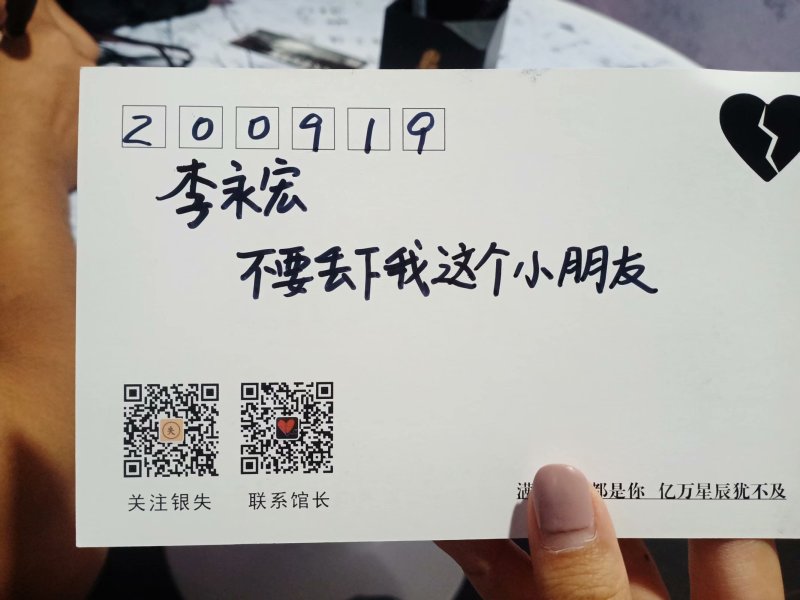 200919
李永宏
不要丢下我这个小朋友
关注银失
联系馆长
满 都是你 亿万星辰犹不及